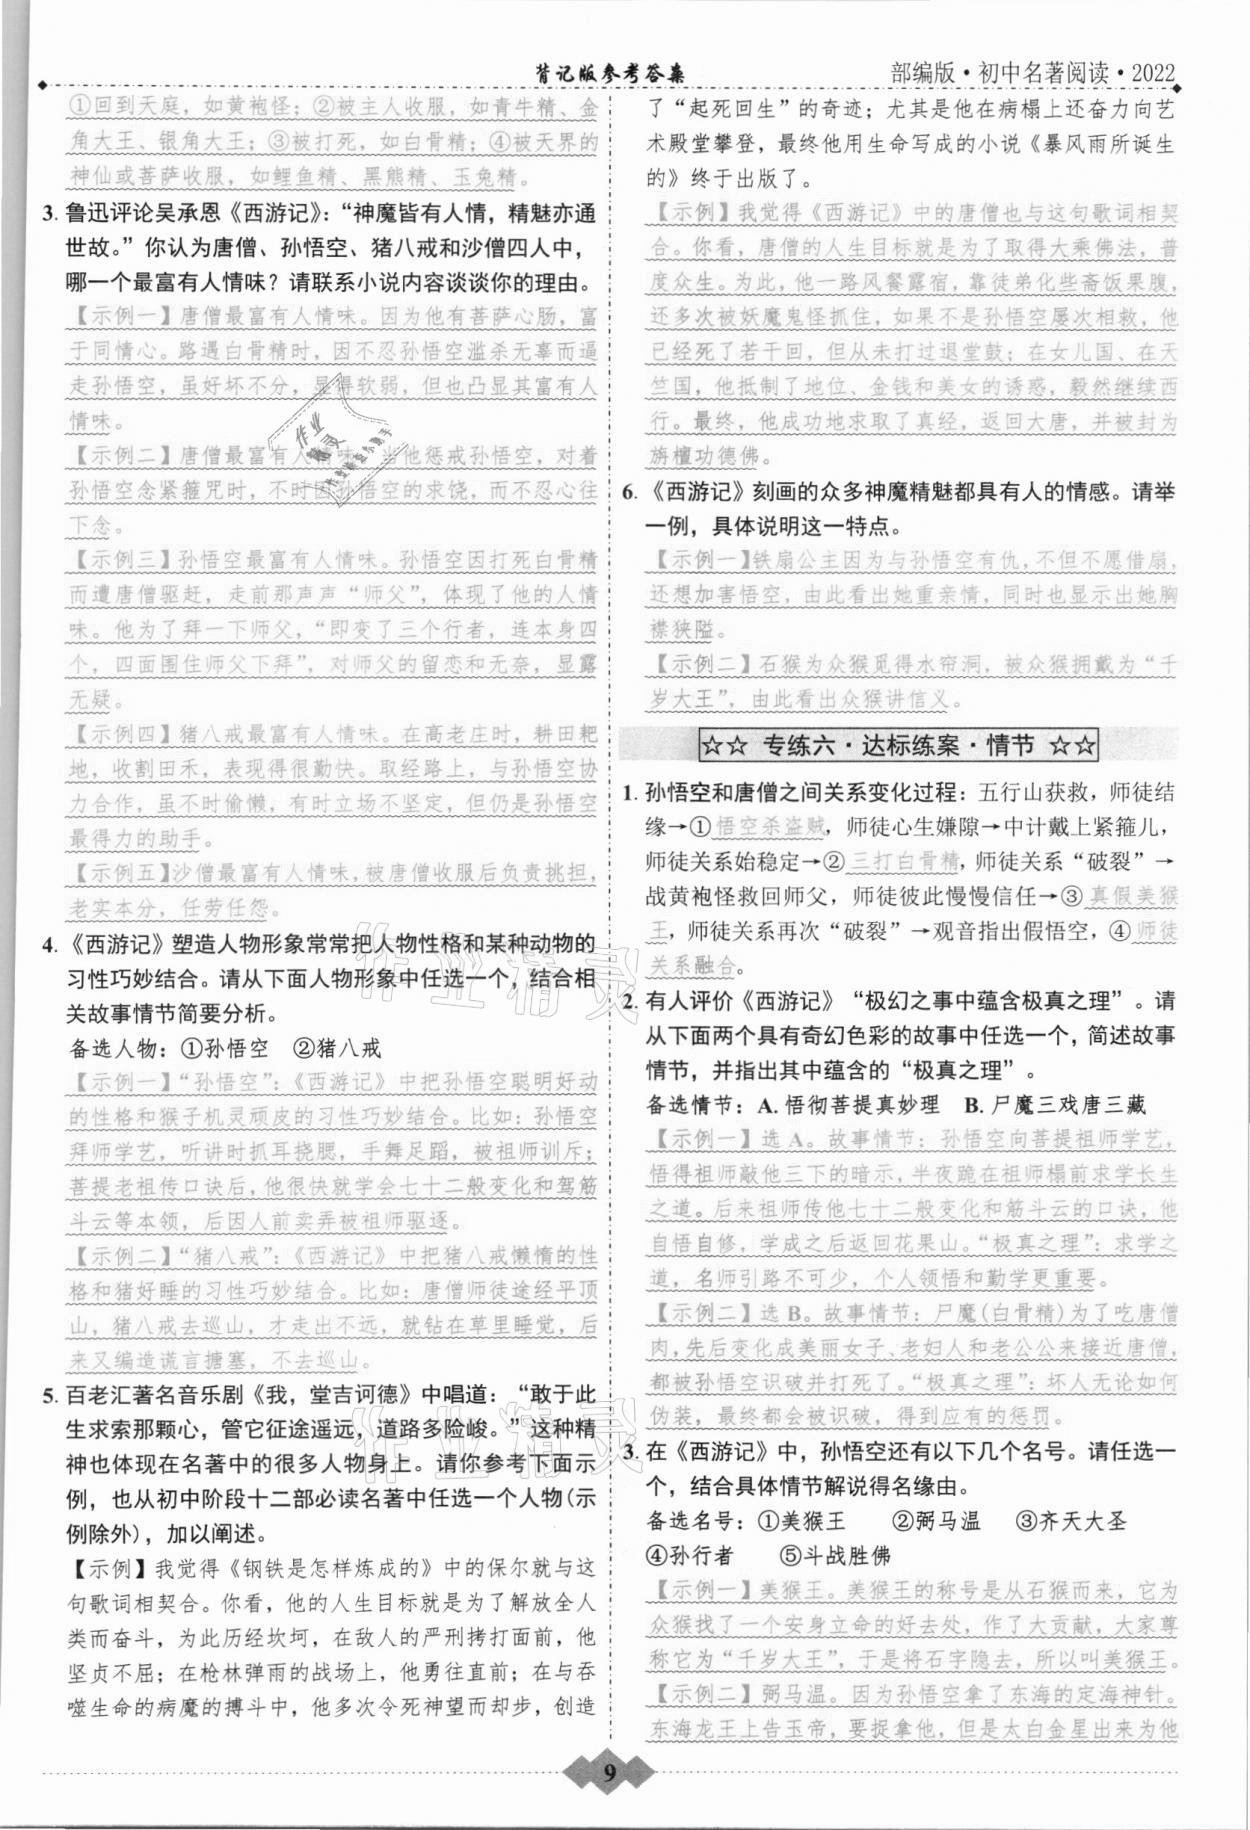 背记版参考答案
部编版·初中名著阅读·2022
①回到天庭，如黄袍怪；②被主人收服，如青牛精、金
角大王、银角大王；③被打死，如白骨精；④被天界的
神仙或菩萨收服，如鲤鱼精、黑熊精、玉兔精。
3. 鲁迅评论吴承恩《西游记》：“神魔皆有人情，精魅亦通
世故。”你认为唐僧、孙悟空、猪八戒和沙僧四人中，
哪一个最富有人情味？请联系小说内容谈谈你的理由。
【示例一】唐僧最富有人情味。因为他有菩萨心肠，富
于同情心。路遇白骨精时，因不忍孙悟空滥杀无辜而逼
走孙悟空，虽好坏不分，显得软弱，但也凸显其富有人
情味。
【示例二】唐僧最富有人情味。当他惩戒孙悟空，对着
孙悟空念紧箍咒时，不时因孙悟空的求饶，而不忍心往
下念。
【示例三】孙悟空最富有人情味。孙悟空因打死白骨精
而遭唐僧驱赶，走前那声声“师父”，体现了他的人情
味。他为了拜一下师父，“即变了三个行者，连本身四
个，四面围住师父下拜”，对师父的留恋和无奈，显露
无疑。
【示例四】猪八戒最富有人情味。在高老庄时，耕田耙
地，收割田禾，表现得很勤快。取经路上，与孙悟空协
力合作，虽不时偷懒，有时立场不坚定，但仍是孙悟空
最得力的助手。
【示例五】沙僧最富有人情味，被唐僧收服后负责挑担，
老实本分，任劳任怨。
4. 《西游记》塑造人物形象常常把人物性格和某种动物的
习性巧妙结合。请从下面人物形象中任选一个，结合相
关故事情节简要分析。
备选人物：①孙悟空 ②猪八戒
【示例一】“孙悟空”：《西游记》中把孙悟空聪明好动
的性格和猴子机灵顽皮的习性巧妙结合。比如：孙悟空
拜师学艺，听讲时抓耳挠腮，手舞足蹈，被祖师训斥；
菩提老祖传口诀后，他很快就学会七十二般变化和驾筋
斗云等本领，后因人前卖弄被祖师驱逐。
【示例二】“猪八戒”：《西游记》中把猪八戒懒惰的性
格和猪好睡的习性巧妙结合。比如：唐僧师徒途经平顶
山，猪八戒去巡山，才走出不远，就钻在草里睡觉，后
来又编造谎言搪塞，不去巡山。
5. 百老汇著名音乐剧《我，堂吉诃德》中唱道：“敢于此
生求索那颗心，管它征途遥远，道路多险峻。”这种精
神也体现在名著中的很多人物身上。请你参考下面示
例，也从初中阶段十二部必读名著中任选一个人物(示
例除外)，加以阐述。
【示例】我觉得《钢铁是怎样炼成的》中的保尔就与这
句歌词相契合。你看，他的人生目标就是为了解放全人
类而奋斗，为此历经坎坷，在敌人的严刑拷打面前，他
坚贞不屈；在枪林弹雨的战场上，他勇往直前；在与吞
噬生命的病魔的搏斗中，他多次令死神望而却步，创造
了“起死回生”的奇迹；尤其是他在病榻上还奋力向艺
术殿堂攀登，最终他用生命写成的小说《暴风雨所诞生
的》终于出版了。
【示例】我觉得《西游记》中的唐僧也与这句歌词相契
合。你看，唐僧的人生目标就是为了取得大乘佛法，普
度众生。为此，他一路风餐露宿，靠徒弟化些斋饭果腹，
还多次被妖魔鬼怪抓住，如果不是孙悟空屡次相救，他
已经死了若干回，但从未打过退堂鼓；在女儿国、在天
竺国，他抵制了地位、金钱和美女的诱惑，毅然继续西
行。最终，他成功地求取了真经，返回大唐，并被封为
旃檀功德佛。
6. 《西游记》刻画的众多神魔精魅都具有人的情感。请举
一例，具体说明这一特点。
【示例一】铁扇公主因为与孙悟空有仇，不但不愿借扇，
还想加害悟空，由此看出她重亲情，同时也显示出她胸
襟狭隘。
【示例二】石猴为众猴觅得水帘洞，被众猴拥戴为“千
岁大王”，由此看出众猴讲信义。
☆☆ 专练六·达标练案·情节 ☆☆
1. 孙悟空和唐僧之间关系变化过程：五行山获救，师徒结
缘→①悟空杀盗贼，师徒心生嫌隙→中计戴上紧箍儿，
师徒关系始稳定→②三打白骨精，师徒关系“破裂”→
战黄袍怪救回师父，师徒彼此慢慢信任→③真假美猴
王，师徒关系再次“破裂”→观音指出假悟空，④师徒
关系融合。
2. 有人评价《西游记》“极幻之事中蕴含极真之理”。请
从下面两个具有奇幻色彩的故事中任选一个，简述故事
情节，并指出其中蕴含的“极真之理”。
备选情节：A. 悟彻菩提真妙理 B. 尸魔三戏唐三藏
【示例一】选 A。故事情节：孙悟空向菩提祖师学艺，
悟得祖师敲他三下的暗示，半夜跪在祖师榻前求学长生
之道。后来祖师传他七十二般变化和筋斗云的口诀，他
自悟自修，学成之后返回花果山。“极真之理”：求学之
道，名师引路不可少，个人领悟和勤学更重要。
【示例二】选 B。故事情节：尸魔(白骨精)为了吃唐僧
肉，先后变化成美丽女子、老妇人和老公公来接近唐僧，
都被孙悟空识破并打死了。“极真之理”：坏人无论如何
伪装，最终都会被识破，得到应有的惩罚。
3. 在《西游记》中，孙悟空还有以下几个名号。请任选一
个，结合具体情节解说得名缘由。
备选名号：①美猴王 ②弼马温 ③齐天大圣
④孙行者 ⑤斗战胜佛
【示例一】美猴王。美猴王的称号是从石猴而来，它为
众猴找了一个安身立命的好去处，作了大贡献，大家尊
称它为“千岁大王”，于是将石字隐去，所以叫美猴王。
【示例二】弼马温。因为孙悟空拿了东海的定海神针。
东海龙王上告玉帝，要捉拿他，但是太白金星出来为他
9
作业精灵
作业精灵
作业精灵